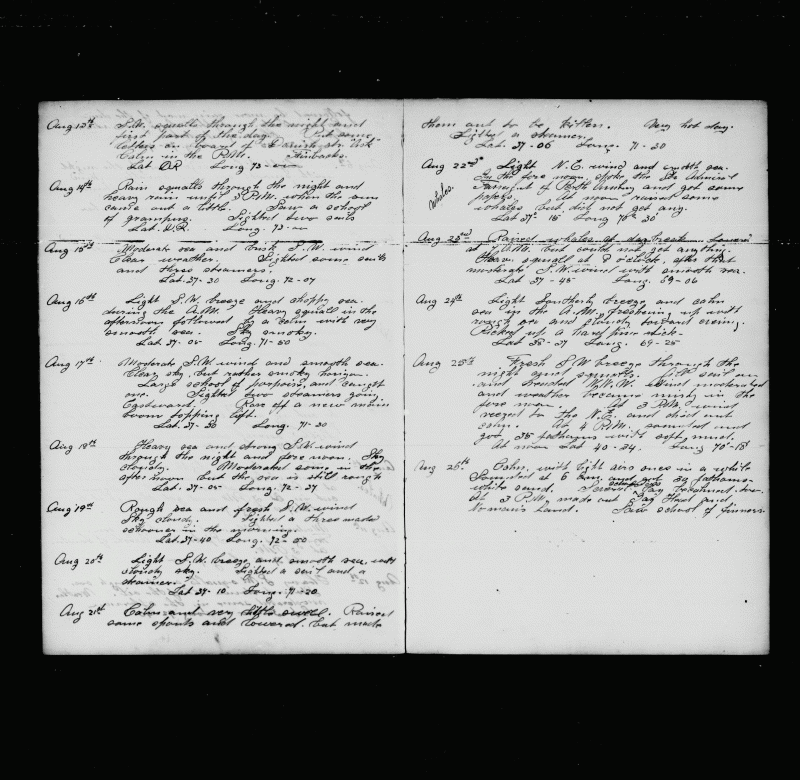 Aug 13th S.W. squalls through the night and
first part of the day. Put some
letters on board of Danish str. "Ark"
Calm in the P.M. Finbacks.
Lat D.R. Long 73-00
Aug 14th Rain squalls through the night and
heavy rain until 3 P.M. when the sun
came out a little. Saw a school
of grampus. Sighted two sails
Lat. D.R. Long. 73-00
Aug 15th Moderate sea and brisk S.W. wind
Clear weather. Sighted some sails
and three steamers.
Lat. 37-30 Long. 72-07
Aug 16th Light S.W. breeze and choppy sea
during the A.M. Heavy squall in the
afternoon followed by a calm with very
smooth sea. Sky smoky.
Lat. 37-05 Long. 71-50
Aug 17th Moderate S.W. wind and smooth sea.
Clear sky, but rather smoky horizon.
Large school of porpoise, and caught
one. Sighted two steamers going
Eastward. a new main
boom topping lift.
Lat. 37-30 Long. 71-30
Aug 18th Heavy sea and strong S.W. wind
through the night and fore noon. Sky
cloudy. Moderated some in the
afternoon but the sea is still rough
Lat. 37-05 Long. 72-37
Aug 19th Rough sea and fresh S.W. wind
Sky cloudy. Sighted a three masted
schooner in the morning.
Lat. 37-40 Long. 72-50
Aug 20th Light S.W. breeze and smooth sea, with
cloudy sky. Sighted a sail and a
steamer.
Lat 37-10 Long. 71-20
Aug 21st Calm and very little swell. Raised
some spouts and lowered, but made
them out to be Very hot day.
Sighted a steamer.
Lat. 37-06 Long. 71-30
Aug 22nd Light N.E. wind and smooth sea.
whales. In the fore noon, spoke the Str. Admiral
of Perth Amboy and got some
papers. At noon raised some
whales but did not get any.
Lat 37-15 Long 70°-30'
Aug 23rd Raised whales at daybreak. Lowered
at 7 A.M. but could not get anything.
Heavy squall at 8 o'clock, after that
moderate S.W. wind with smooth sea.
Lat 37-45 Long. 69-06
Aug 24th Light Southerly breeze and calm
sea in the A.M., freshening up with
rough sea and cloudy toward evening.
Picked up a hard pine stick.
Lat 38-37 Long. 69-25
Aug 25th Fresh S.W breeze through the
night and squally. sail on
and headed W.N.W. Wind moderated
and weather became misty in the
fore noon. At 3 P.M. wind
veered to the N.E. and died out
calm. At 4 P.M. sounded and
got 38 fathoms with soft mud.
At noon Lat 40-24. Long 70°-18'
Aug 26th Calm, with light airs once in a while
Sounded at 6 a.m. and got 29 fathoms
white sand.
At 3 P.M. made out Gay Head and
No mans Land. Saw school of finners.